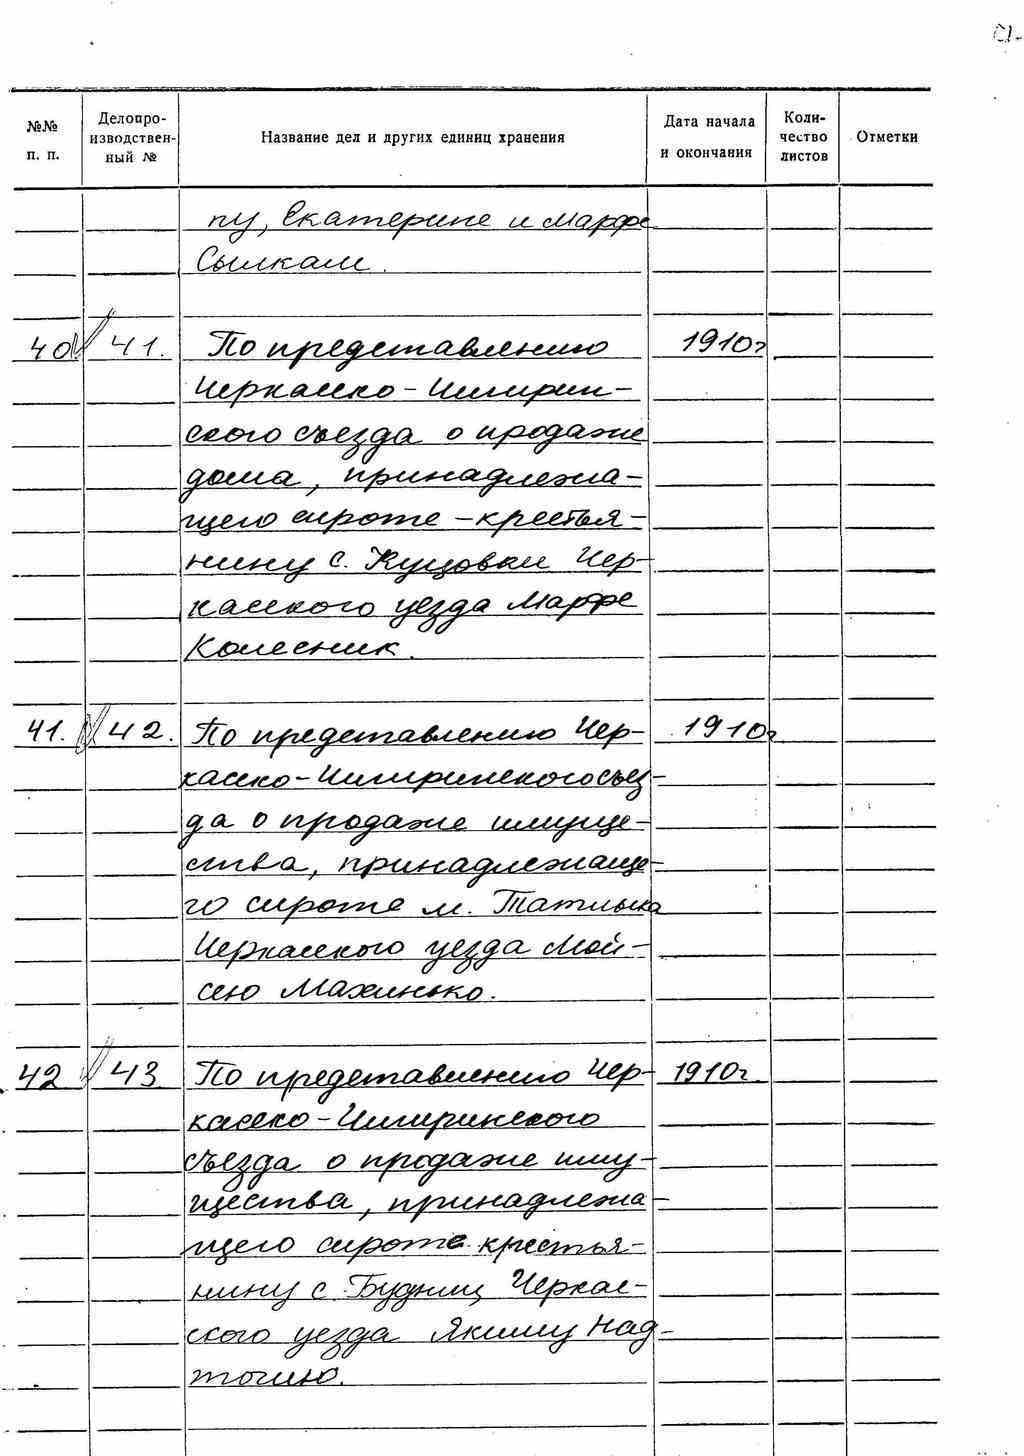 №№ п. п. Делопроизводственный № Название дел и других единиц хранения Дата начала и окончания Количество листов Отметки
пу, Екатерине и Марфе
Сылкам.
40 41. По представлению 1910г
Черкасско-Чигирин-
ского съезда о продаже
дома, принадлежа-
щего сироте-крестья-
нину с. Куцовки Чер-
касского уезда Марфе
Колесник.
41. 42. По представлению Чер- 1910г
касско-Чигиринского съез-
да о продаже имуще-
ства, принадлежаще-
го сироте м. Татлыка
Черкасского уезда Мой-
сею Махинько.
42 43 По представлению Чер- 1910г.
касско-Чигиринского
съезда о продаже иму-
щества, принадлежа-
щего сироте крестья-
нину с. Будищ Черкас-
ского уезда Якиму Над-
точию.